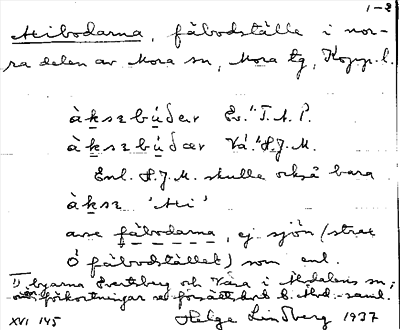 1-2
Axibodarna, fäbodställe i nor-
ra delen av Mora sn, Mora tg, Kopp. l.
àksɪbúdar Ev. 1) T.A.P.
àksɪbúdær Vå. 1) H.J.M.
Enl. H.J.M. skulle också bara
àksɪ 'Axi'
avse fäbodarna, ej sjön (strax
Ö fäbodstället) som enl.
1) byarna Evertsberg och Våsa i Älvdalens sn;
förkortningar se försättsbl. t. Älvd.-saml.
XVI 145 Helge Lindberg 1937